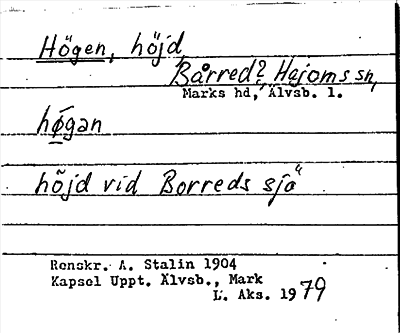 Högen, höjd
Bårred? Hajoms sn,
Marks hd, Älvsb. l.
hǿgan
höjd vid Borreds sjö
Renskr. A. Stalin 1904
Kapsel Uppt. Älvsb., Mark
L. Aks. 1979